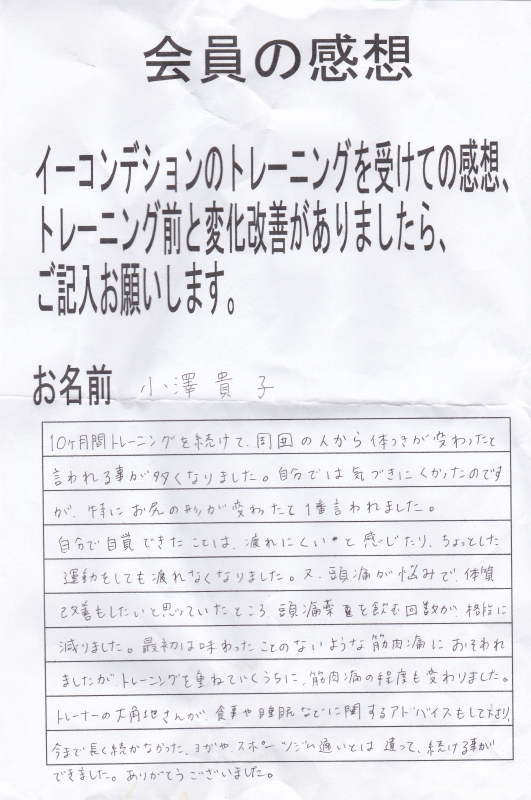 会員の感想
イーコンデションのトレーニングを受けての感想、
トレーニング前と変化改善がありましたら、
ご記入お願いします。
お名前 小澤貴子
10ヶ月間トレーニングを続けて、周囲の人から体つきが変わったと
言われる事が多くなりました。自分では気づきにくかったのです
が、特にお尻の形が変わったと1番言われました。
自分で自覚できたことは、疲れにくいと感じたり、ちょっとした
運動をしても疲れなくなりました。又、頭痛が悩みで、体質
改善もしたいと思っていたところ、頭痛薬を飲む回数が、格段に
減りました。最初は味わったことのないような筋肉痛におそわれ
ましたが、トレーニングを重ねていくうちに、筋肉痛の程度も変わりました。
トレーナーの大角地さんが、食事や睡眠などに関するアドバイスもして下さり、
今まで長く続かなかった、ヨガや、スポーツジム通いとは違って、続ける事が
できました。ありがとうございました。